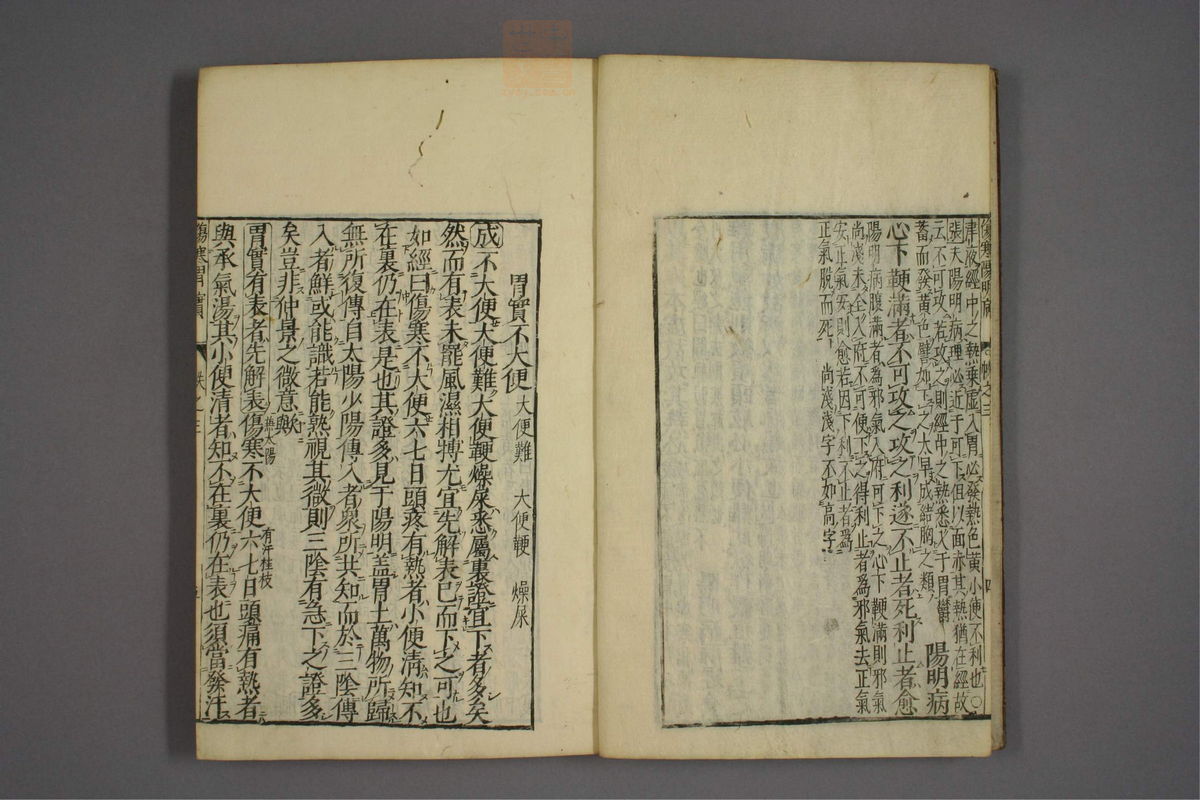 津液經中之熱乘虛入胃必發熱色黃小便不利也○
張夫陽明病理必近于可下但以面赤其熱猶在經故
云不可攻若攻之則經中之熱悉入于胃鬱
蓄而發黃色譬如下之太早成結胸之類 陽明病
心下鞕滿者不可攻之攻之利遂不止者死利止者愈
陽明病腹滿者為邪氣入府可下之心下鞕滿則邪氣
尚淺未全入府不可便下之得利止者為邪氣去正氣
安正氣安則愈若因下利不止者為
正氣脫而死 尚淺淺字不如高字
胃實不大便 大便難 大便鞕 燥屎
成 不大便大便難大便鞕燥屎悉屬裏證宜下者多矣
然而有表未罷風濕相搏尤宜先解表已而下之可也
如經曰傷寒不大便六七日頭疼有熱者小便清知不
在裏仍在表是也其證多見于陽明盖胃土萬物所歸
無所復傳自太陽少陽傳入者衆所共知而於三陰傳
入者鮮或能識若能熟視其微則三陰有急下之證多
矣豈非仲景之微意歟
胃實有表者先解表傷寒不大便六七日頭痛有熱者
與承氣湯其小便清者知不在裏仍在表也須當發汗
傷寒胃實